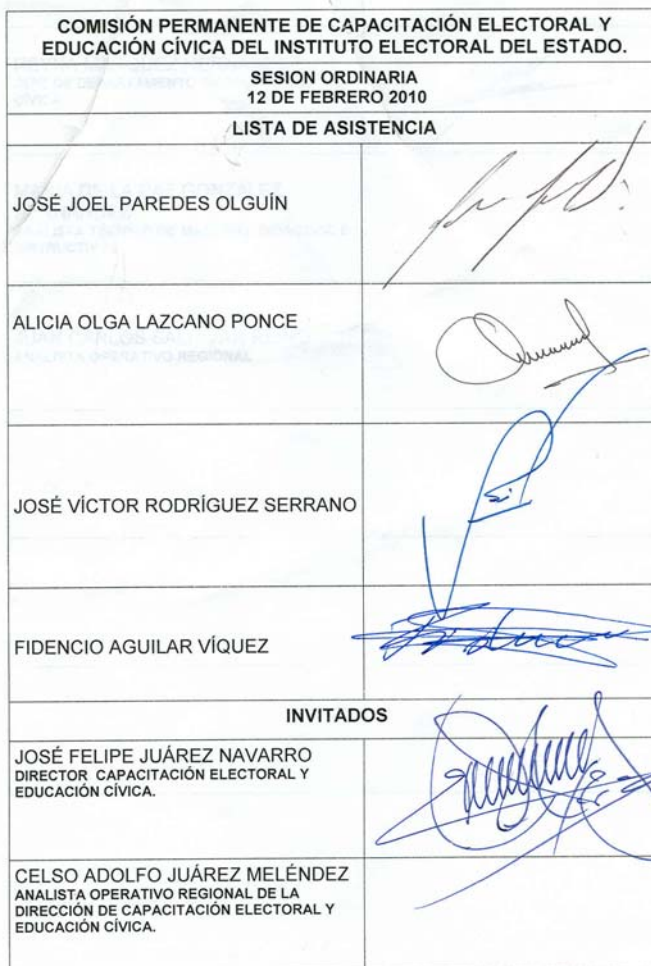 COMISIÓN PERMANENTE DE CAPACITACIÓN ELECTORAL Y
EDUCACIÓN CÍVICA DEL INSTITUTO ELECTORAL DEL ESTADO.
SESION ORDINARIA
12 DE FEBRERO 2010
LISTA DE ASISTENCIA
JOSÉ JOEL PAREDES OLGUÍN
ALICIA OLGA LAZCANO PONCE
JOSÉ VÍCTOR RODRÍGUEZ SERRANO
FIDENCIO AGUILAR VÍQUEZ
INVITADOS
JOSÉ FELIPE JUÁREZ NAVARRO
DIRECTOR CAPACITACIÓN ELECTORAL Y
EDUCACIÓN CÍVICA.
CELSO ADOLFO JUÁREZ MELÉNDEZ
ANALISTA OPERATIVO REGIONAL DE LA
DIRECCIÓN DE CAPACITACIÓN ELECTORAL Y
EDUCACIÓN CÍVICA.